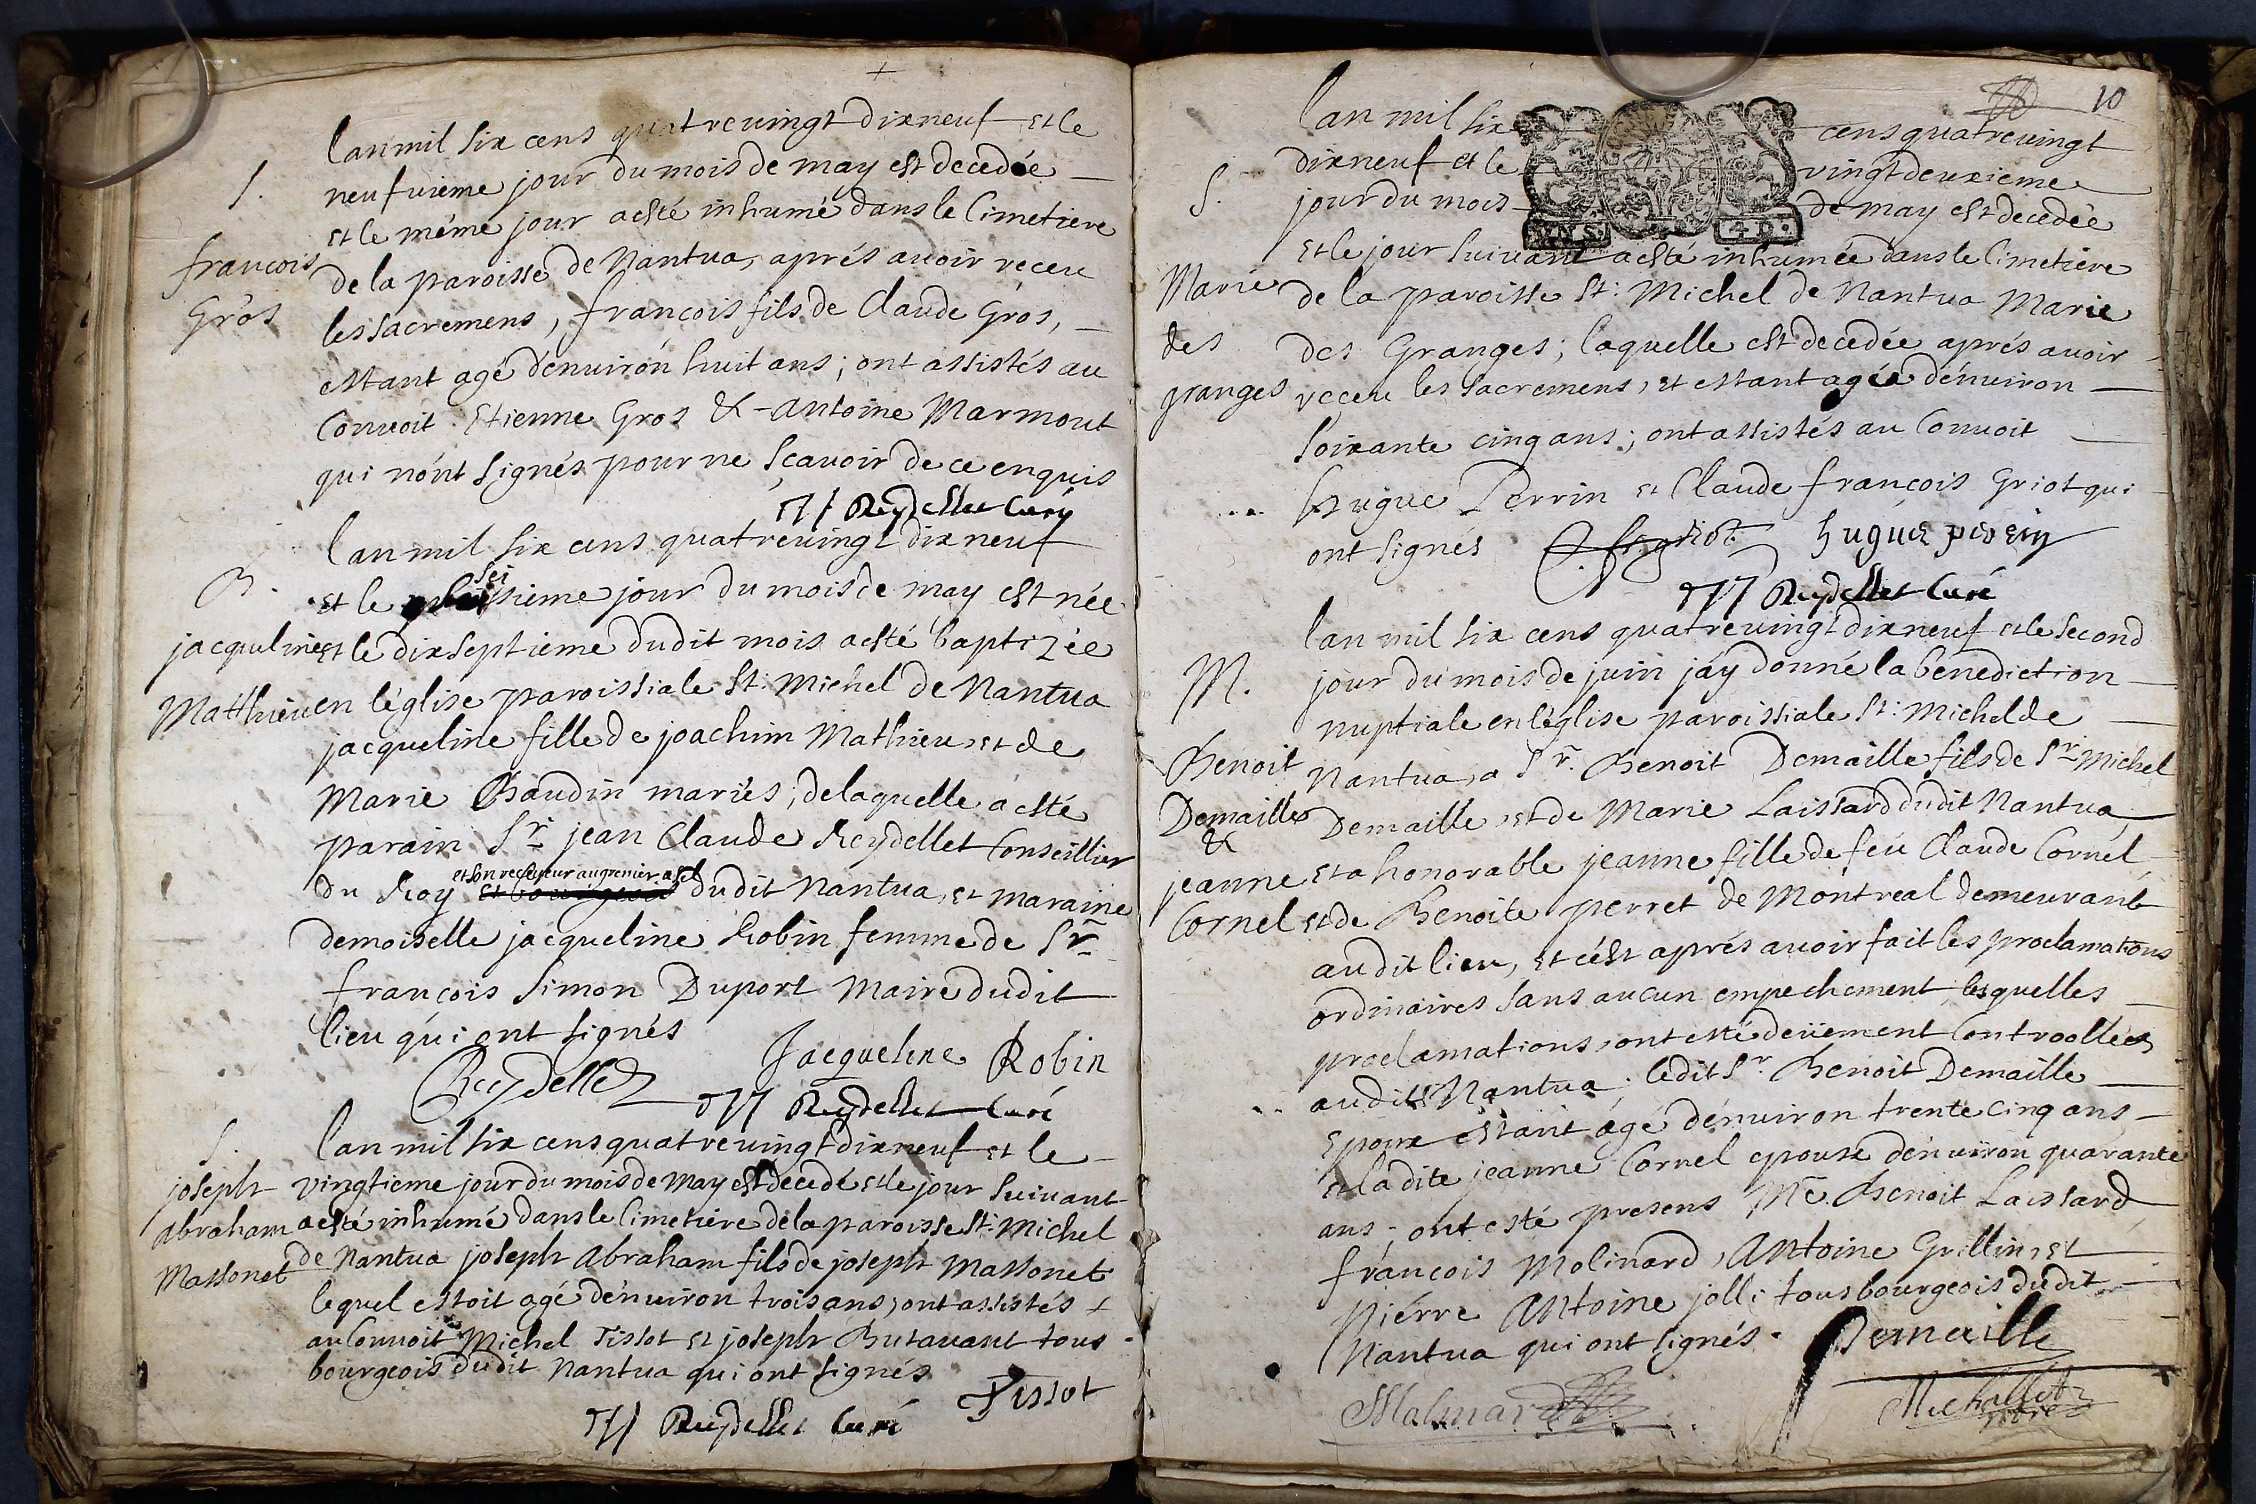 lan mil six cens quatrevingt dixneuf et le
S. neufuieme jour du mois de may est decedée
et le méme jour a esté inhumé dans le Cimetiere
francois de la paroisse de Nantua, aprés auoir receu
Gros les sacremens, francois fils de Claude Gros,
estant agé dénuirón huit ans; ont assistés au
Conuoit Etienne Gros & Antoine Marmout
qui nónt signés pour ne scauoir de ce enquis
Reydellet Curé
lan mil six cens quatreuingt dixneuf
B. et le sei sieme jour du mois de may est née
jacquline et le dixseptieme dudit mois a esté baptizée
Matthieu en léglise paroissiale St. Michel de Nantua
jacqueline fille de joachim Mathieu et de
Marie Baudin mariés; de laquelle a esté
parain Sr. jean Claude Reydellet Conseillier
et son receveur au grenier a sel
du Roy et bourgeois dudit Nantua, et maraine
demoiselle jacqueline Robin femme de Sr.
françois Simon Duport Maire dudit
lieu qui ont signés
Jacqueline Robin
Reydellet
Reydellet Curé
S. lan mil six cens quatreuingt dixneuf et le
joseph vingtieme jour du mois de may est decedé et le jour suiuant
abraham a esté inhumé dans le Cimetiere de la paroisse St. Michel
Massonet de Nantua joseph abraham fils de joseph Massonet
lequel estoit agé dénuirón trois ans, ont assistés
au Conuoit Michel Tissot et joseph Butauant tous
bourgeois dudit Nantua qui ont signés
Tissot
Reydellet Curé
10
lan mil six cens quatreuingt
dixneuf et le vingt deuxieme
S. jour du mois de may est decedée
et le jour suiuant a esté inhumée dans le Cimetiere
Marie de la paroisse St. Michel de Nantua Marie
des des Granges; laquelle est decedée aprés auoir
granges receu les sacremens, et estant agée dénuiron
soixante cinq ans; ont assistés au Conuoit
hugue Perrin et Claude françois Griot qui
ont signés C. f. griot hugue perrin
Reydellet Curé
lan mil six cens quatreuingt dixneuf et le second
M. jour du mois de juin jáy donné la benediction
nuptiale en léglise paroissiale St. Michel de
Benoit Nantua, a Sr. Benoit Demaille fils de Sr. Michel
Demaille Demaille, et de Marie Laissard dudit Nantua,
& jeanne et a honorable jeanne fille de feu Claude Cornel
Cornel et de Benoite perret de Montreal demeurant
audit lieu, et cést aprés auoir fait les proclamations
ordinaires sans aucun empechement, lesquelles
proclamations ont esté deüement Controollées
audit Nantua; ledit Sr. Benoit Demaille
epoux estant agé dénuiron trente cinq ans
et la dite jeanne Cornel epouse dénuiron quarante
ans; ont esté presens Me. Benoit Laissard,
francois Molinard, Antoine Grillin, et
Piérre Antoine jolli tous bourgeois dudit
Nantua qui ont signés. Demaille